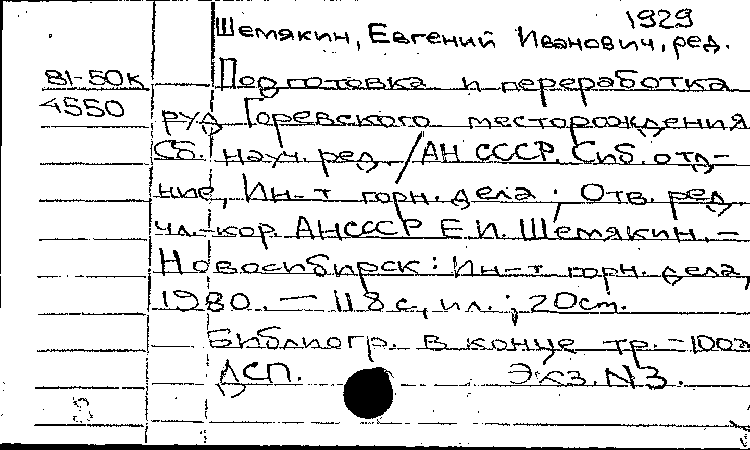 1929
Шемякин, Евгений Иванович, ред.
81-50К Подготовка и переработка
4550 руд Горевского месторождения
Сб. науч. ред. / АН СССР. Сиб. отд-
ние, Ин-т горн. дела ; Отв. ред.
чл.-кор. АНСССР Е.И. Шемякин. -
Новосибирск : Ин-т горн. дела,
1980. — 118 с., ил. ; 20 см.
Библиогр. в конце тр. - 100э
ДСП. Экз. N3.